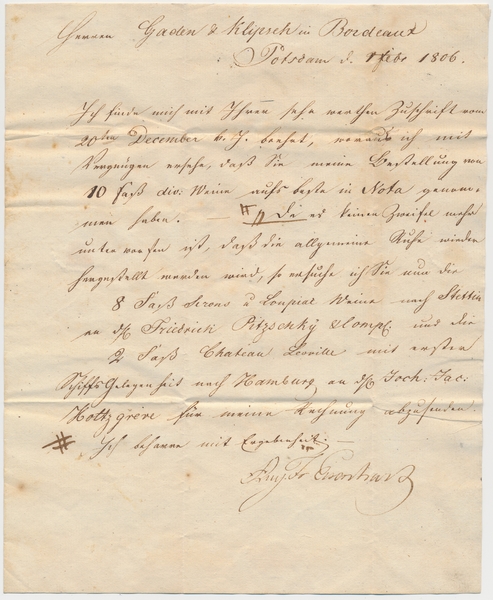 Herren Gaden & Klipsch in Bordeaux
Potsdam d. 1 Febr 1806.
Ich finde mich mit Ihrer sehr werthen Zuschrift vom
20ten December v. J. beehrt, woraus ich mit
Vergnügen ersehe, daß Sie meine Bestellung von
10 Faß div: Weine aufs beste in Nota genom-
men haben. — Da es keinen Zweifel mehr
unterworfen ist, daß die allgemeine Ruhe wieder
hergestellt werden wird, so ersuche ich Sie nun die
8 Faß u Loupiac Weine nach Stettin
an Friedrich Pitzschky & Comp: und die
2 Faß Chateau Leoville mit erster
Schiffs Gelegenheit nach Hamburg an Joch: Jac:
Holtzgreve für meine Rechnung abzusenden.
Ich beharre mit Ergebenheit. —